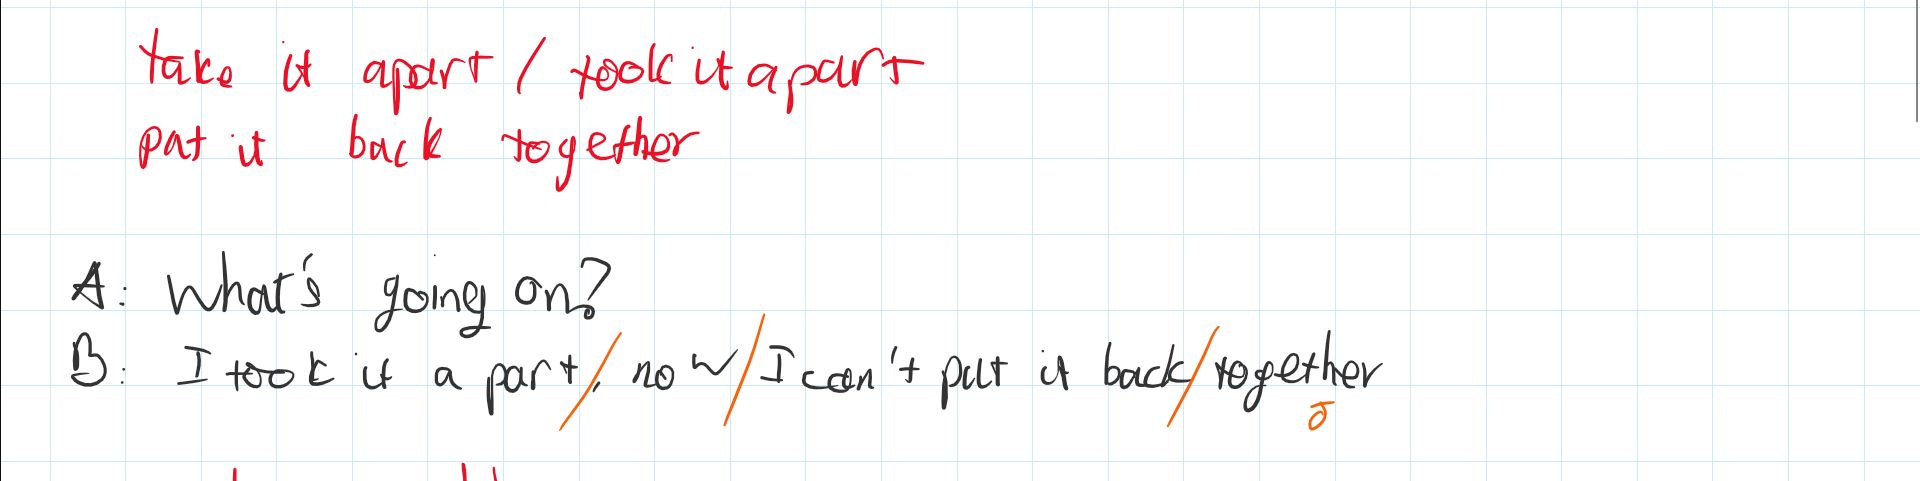 take it apart / took it apart
put it back together
A: What's going on?
B: I took it a part, / now / I can't put it back / together